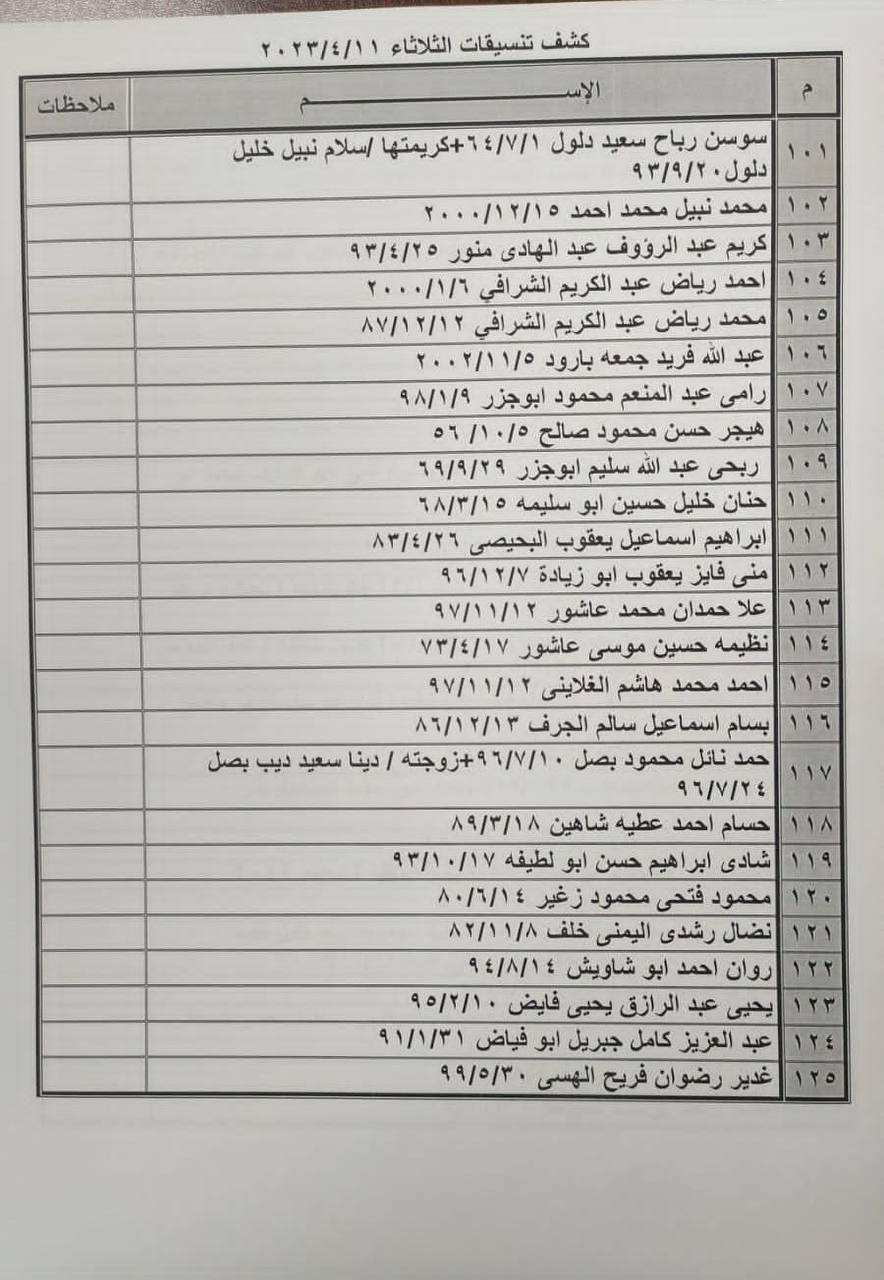 كشف تنسيقات الثلاثاء ٢٠٢٣/٤/١١
م الإســـــــــم ملاحظات
١٠١ سوسن رباح سعيد دلول ٦٤/٧/١+كريمتها /سلام نبيل خليل
دلول٩٣/٩/٢٠
١٠٢ محمد نبيل محمد احمد ٢٠٠٠/١٢/١٥
١٠٣ كريم عبد الرؤوف عبد الهادى منور ٩٣/٤/٢٥
١٠٤ احمد رياض عبد الكريم الشرافي ٢٠٠٠/١/٦
١٠٥ محمد رياض عبد الكريم الشرافي ٨٧/١٢/١٢
١٠٦ عبد الله فريد جمعه بارود ٢٠٠٢/١١/٥
١٠٧ رامى عبد المنعم محمود ابوجزر ٩٨/١/٩
١٠٨ هيجر حسن محمود صالح ٥٦/١٠/٥
١٠٩ ربحى عبد الله سليم ابوجزر ٦٩/٩/٢٩
١١٠ حنان خليل حسين ابو سليمه ٦٨/٣/١٥
١١١ ابراهيم اسماعيل يعقوب البحيصى ٨٣/٤/٢٦
١١٢ منى فايز يعقوب ابو زيادة ٩٦/١٢/٧
١١٣ علا حمدان محمد عاشور ٩٧/١١/١٢
١١٤ نظيمه حسين موسى عاشور ٧٣/٤/١٧
١١٥ احمد محمد هاشم الغلاينى ٩٧/١١/١٢
١١٦ بسام اسماعيل سالم الجرف ٨٦/١٢/١٣
١١٧ حمد نائل محمود بصل ٩٦/٧/١٠+زوجته / دينا سعيد ديب بصل
٩٦/٧/٢٤
١١٨ حسام احمد عطيه شاهين ٨٩/٣/١٨
١١٩ شادى ابراهيم حسن ابو لطيفه ٩٣/١٠/١٧
١٢٠ محمود فتحى محمود زغير ٨٠/٦/١٤
١٢١ نضال رشدى اليمنى خلف ٨٢/١١/٨
١٢٢ روان احمد ابو شاويش ٩٤/٨/١٤
١٢٣ يحيى عبد الرازق يحيى فايض ٩٥/٢/١٠
١٢٤ عبد العزيز كامل جبريل ابو فياض ٩١/١/٣١
١٢٥ غدير رضوان فريح الهسى ٩٩/٥/٣٠